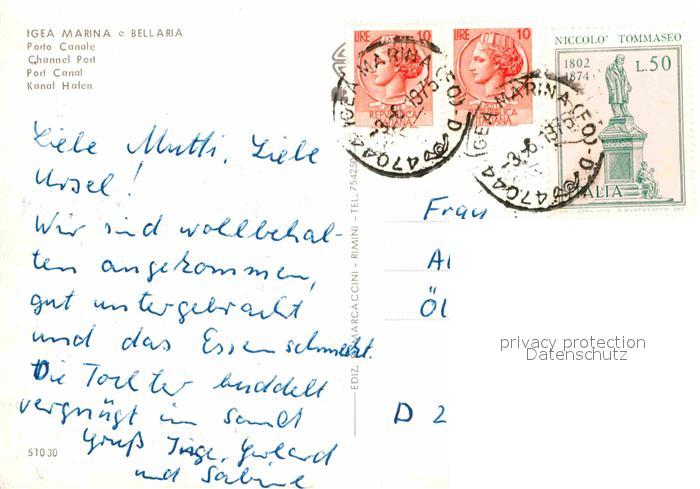 IGEA MARINA e BELLARIA
Porto Canale
Channel Port
Port Canal
Kanal Hafen
LIRE 10
LIRE 10
NICCOLO' TOMMASEO
1802
1874
L.50
ITALIA
47044 IGEA MARINA (FO)
-3.-6.1975
47044 IGEA MARINA (FO)
-3.-6.1975
Liebe Mutti, Liebe
Ursel!
Wir sind wohlbehal-
ten angekommen,
gut untergebracht
und das Essen schmeckt.
Die Tochter buddelt
vergnügt im Sand
Gruß Inge, Gerhard
und Sabine
51030
EDIZ. MARCACCINI - RIMINI - TEL. 75425
Frau
Al
Öl
D 2
privacy protection
Datenschutz